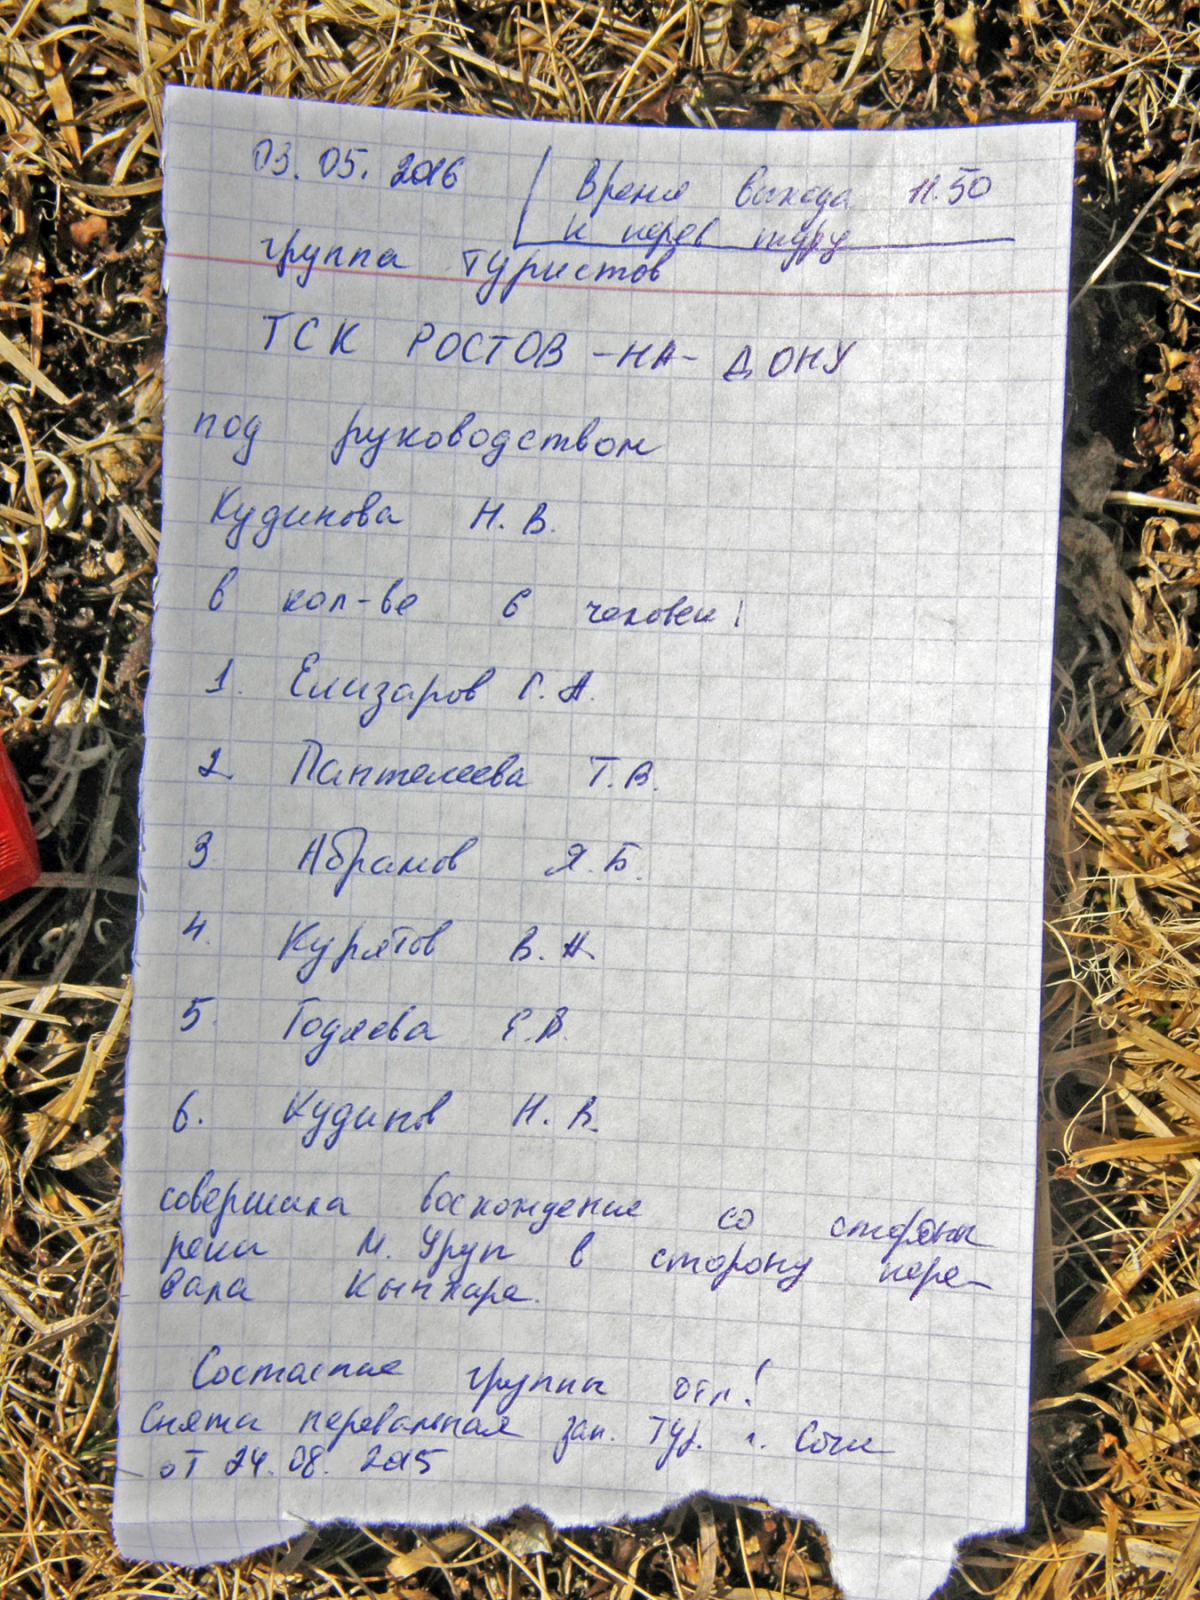 03.05.2016
Время выхода 11.50
к перев туру
группа туристов
ТСК РОСТОВ-НА-ДОНУ
под руководством
Кудинова Н.В.
в кол-ве 6 человек!
1. Елизаров Г.А.
2. Пантелеева Т.В.
3 Абрамов Я.Б.
4. Курятов В.А.
5. Годяева Е.В.
6. Кудинов Н.В.
совершила восхождение со стороны
реки М. Уруп в сторону пере-
вала Кынхара.
Состояние группы отл!
Снята перевальная зап. тур. г. Сочи
от 24.08.2015